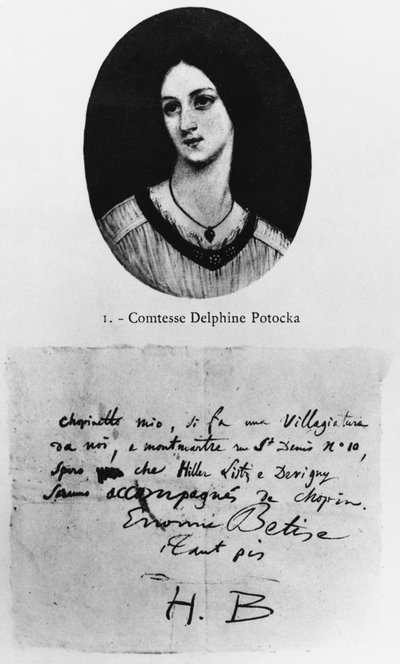 1. - Comtesse Delphine Potocka
Chopinetto mio, si fa una Villagiatura
da noi, a montmartre rue St Denis No 10,
spero che Hiller Listz e Devigny
saranno accompagnés de chopin.
Enorme Betise
tant pis
H. B